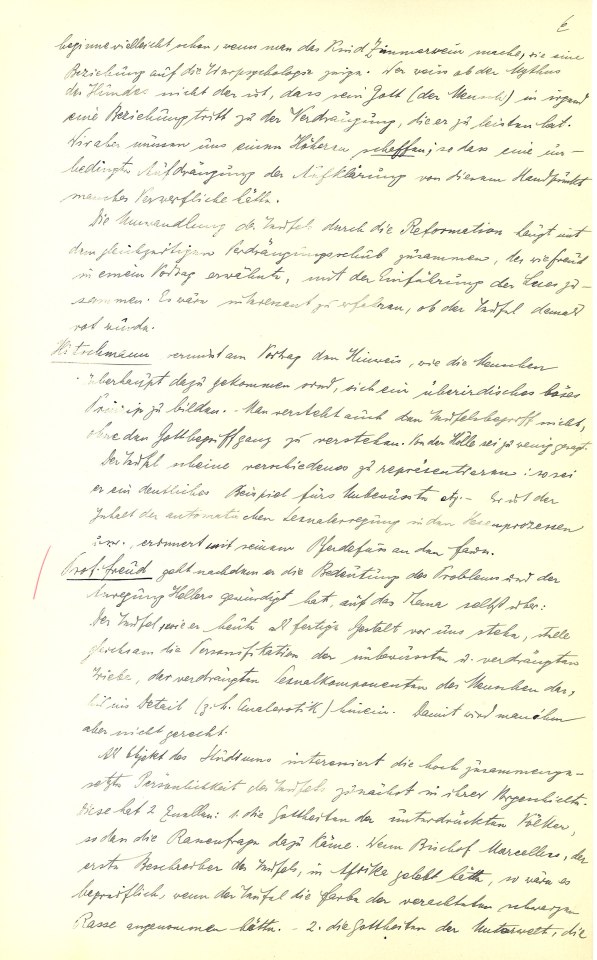 6
beginne vielleicht schon, wenn man das Kind Zimmerrein mache, wie eine
Beziehung auf die Tierpsychologie zeige. Wer weiss ob der Mythus
des Hundes nicht der ist, dass sein Gott (der Mensch) in irgend
eine Beziehung tritt zu der Verdrängung, die er zu leisten hat.
Wir aber müssen uns einen Höheren schaffen; so dass eine un-
bedingte Aufdrängung der Aufklärung von diesem Standpunkt
manches Verwerfliche hätte.
Die Umwandlung des Teufels durch die Reformation hängt mit
dem gleichzeitigen Verdrängungsschub zusammen, der wie Freud
in einem Vortrag erwähnte, mit der Einführung der Lues zu-
sammen. Es wäre interessant zu erfahren, ob der Teufel damals
rot wurde.
Hitschmann vermisst am Vortrag den Hinweis, wie die Menschen
überhaupt dazu gekommen sind, sich ein überirdisches böses
Prinzip zu bilden. Man versteht auch den Teufelsbegriff nicht,
ohne den Gottbegriff ganz zu verstehen. Von der Hölle sei zu wenig gesagt.
Der Teufel scheine verschiedenes zu repräsentieren: so sei
er ein deutliches Beispiel fürs Unbewusste etc. - Er ist der
Inhalt der automatischen Sexualerregung in den Hexenprozessen
usw., erinnert mit seinem Pferdefuss an den Faun.
Prof. Freud geht nachdem er die Bedeutung des Problems und der
Anregung Hellers gewürdigt hat, auf das Thema selbst über:
Der Teufel, wie er heute als fertige Gestalt vor uns stehe, stelle
gleichsam die Personifikation der unbewussten u. verdrängten
Triebe, der verdrängten Sexualkomponenten des Menschen dar,
bis ins Detail (z.b. Analerotik) hinein. Damit wird man ihm
aber nicht gerecht.
Als Objekt des Studiums interessiert die hoch zusammenge-
setzte Persönlichkeit des Teufels zunächst in ihrer Vorgeschichte.
Diese hat 2 Quellen: 1. die Gottheiten der unterdrückten Völker,
so dass die Rassenfrage dazu käme. Wenn Bischof Marcellus, der
erste Beschreiber des Teufels, in Afrika gelebt hätte, so wäre es
begreiflich, wenn der Teufel die Farbe der verachteten schwarzen
Rasse angenommen hätte. - 2. die Gottheiten der Unterwelt, die